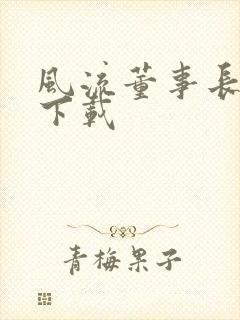 風流董事長
下載
青梅果子